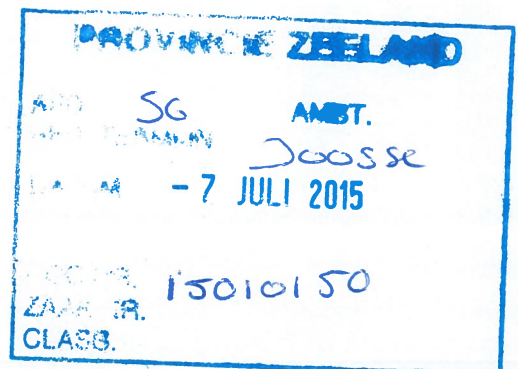 PROVINCIE ZEELAND
AFD. SG AMBT.
Joosse
DATUM - 7 JULI 2015
15010150
ZAAKNR.
CLASS.